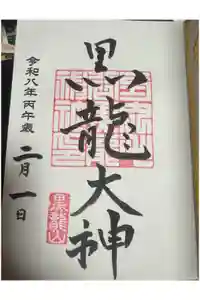 黒龍大神
令和八年丙午歳
二月一日
黒龍山